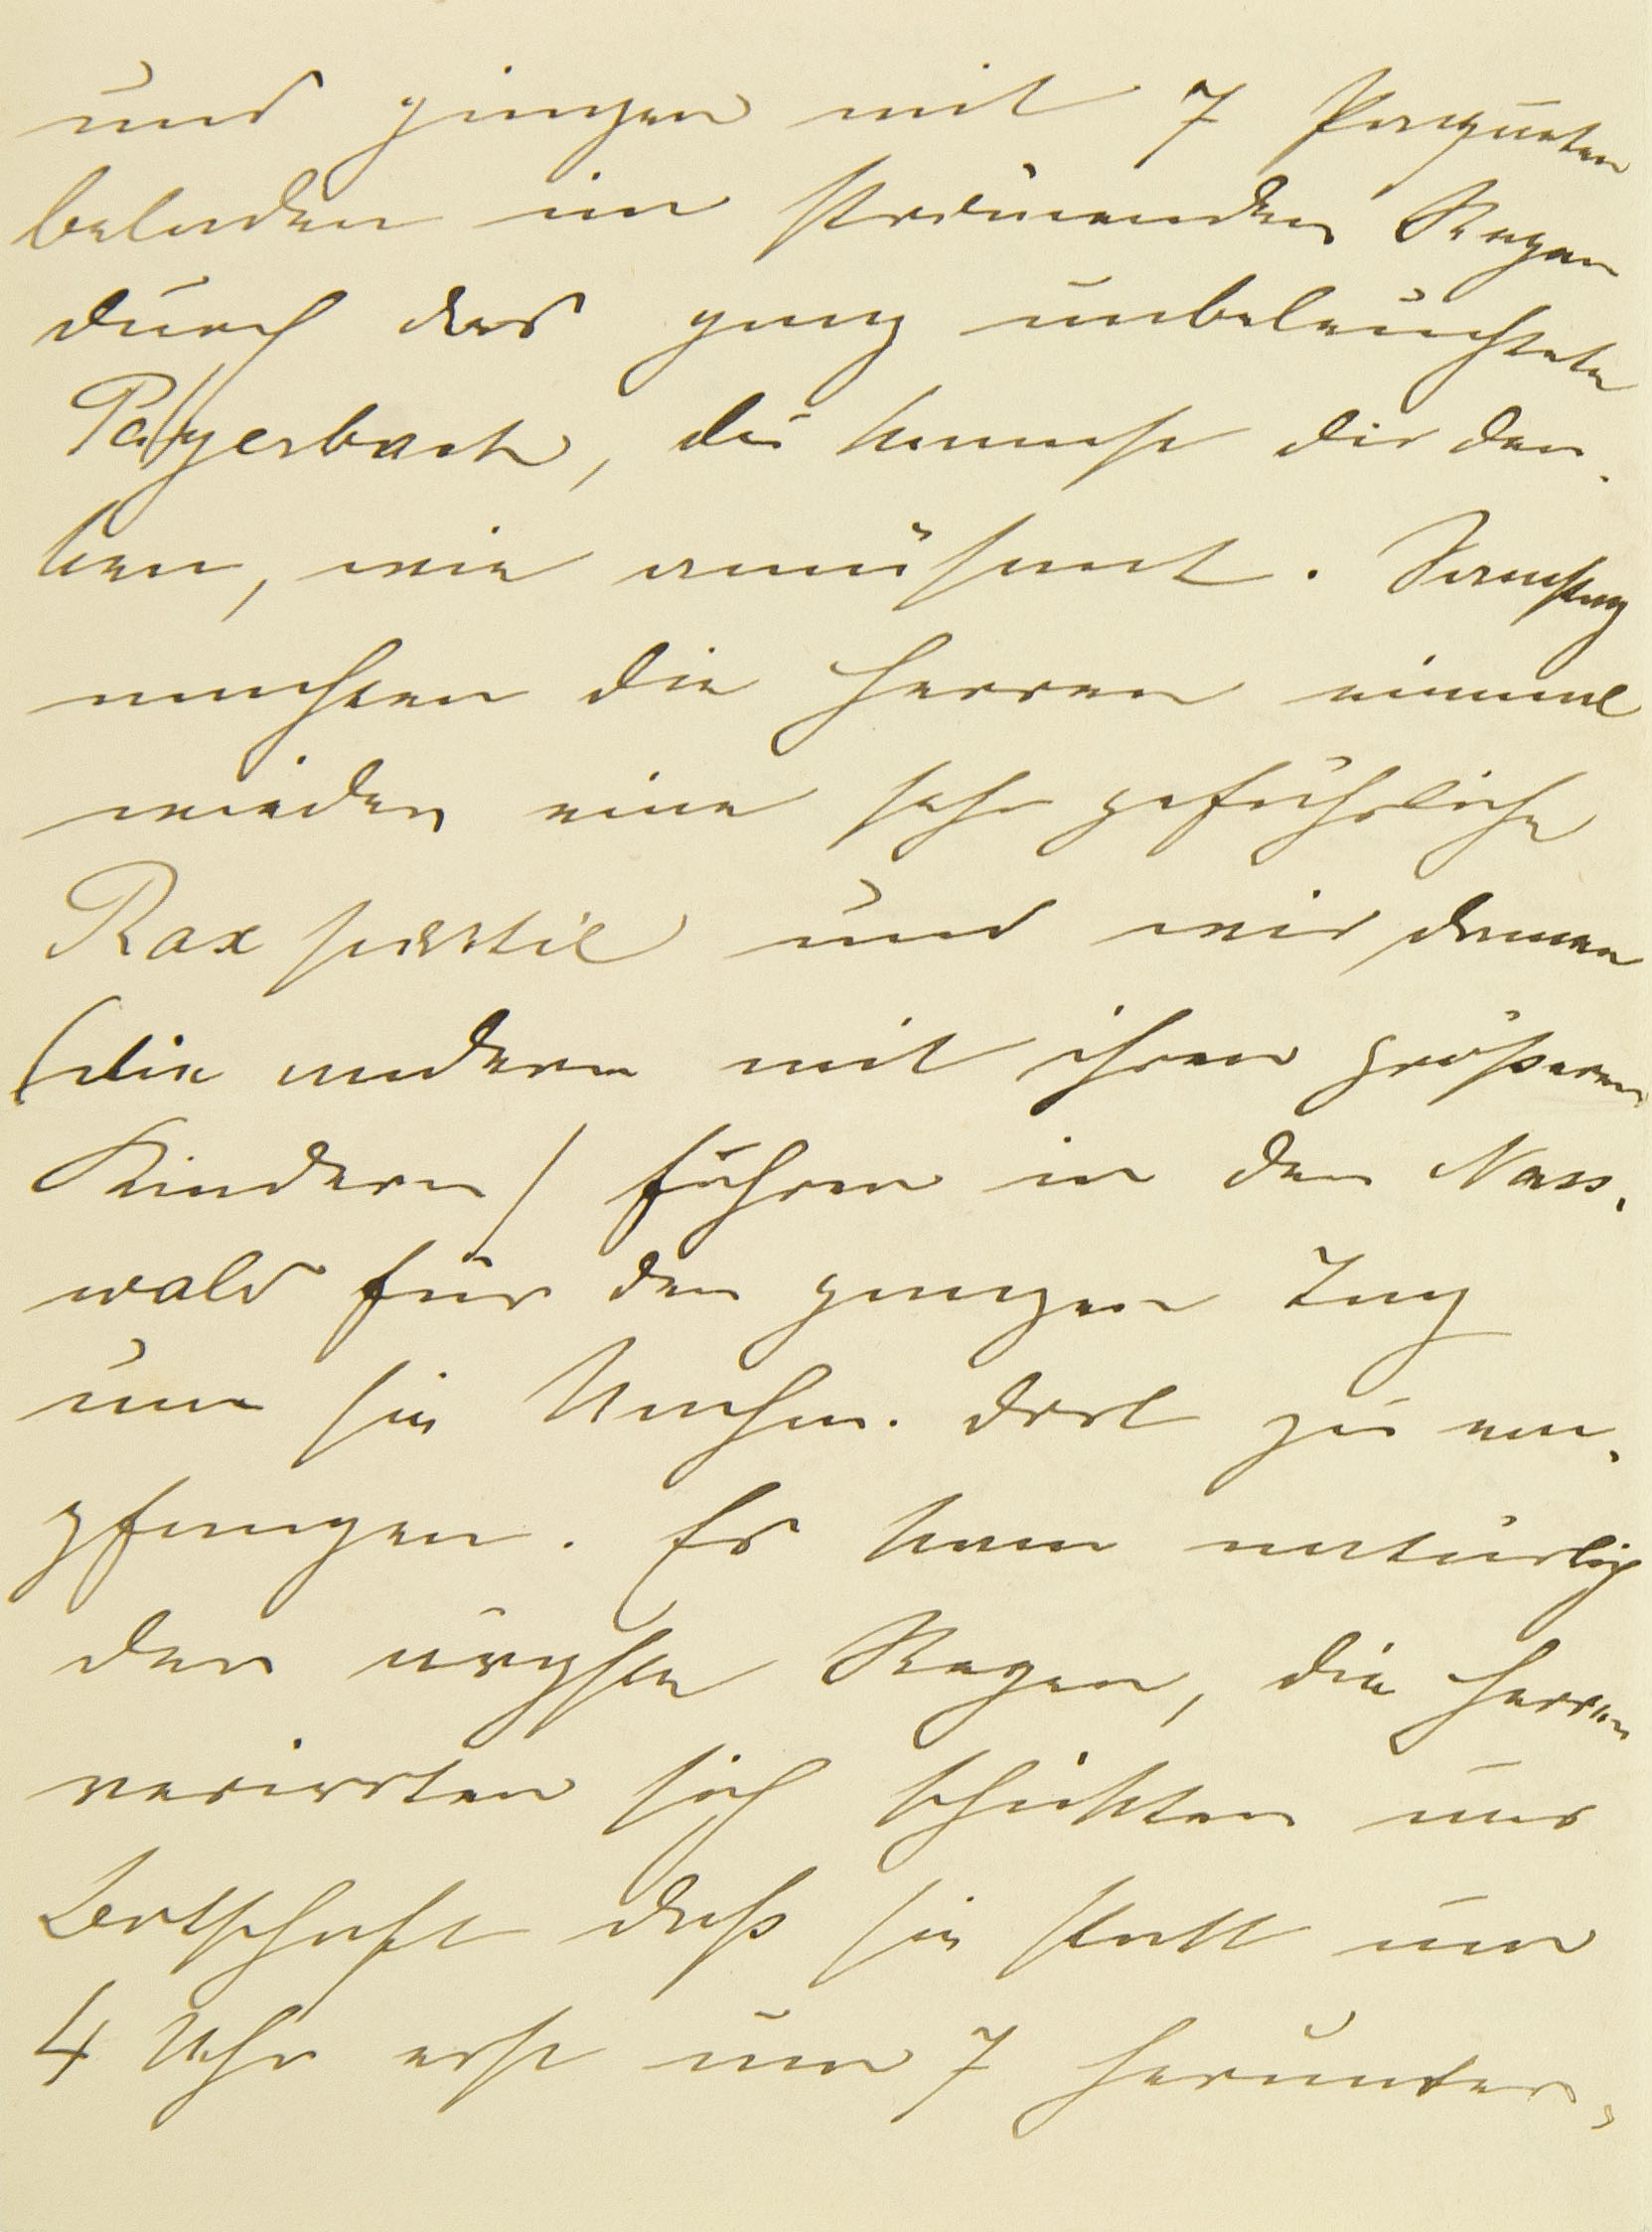 und gingen mit 7 Paqueten
beladen im strömenden Regen
durch das ganz unbeleuchtete
Payerbach, du kannst dir den-
ken, wie amüsant. Samstag
machten die Herren einmal
wieder eine sehr gefährliche
Raxpartie und wir Damen
(die andern mit ihren größeren
Kindern) fuhren in den Nass-
wald für den ganzen Tag
um sie Nachm. dort zu em-
pfangen. Es kam natürlich
der ärgste Regen, die Herren
verirrten sich schickten uns
Botschaft daß sie statt um
4 Uhr erst um 7 herunter-